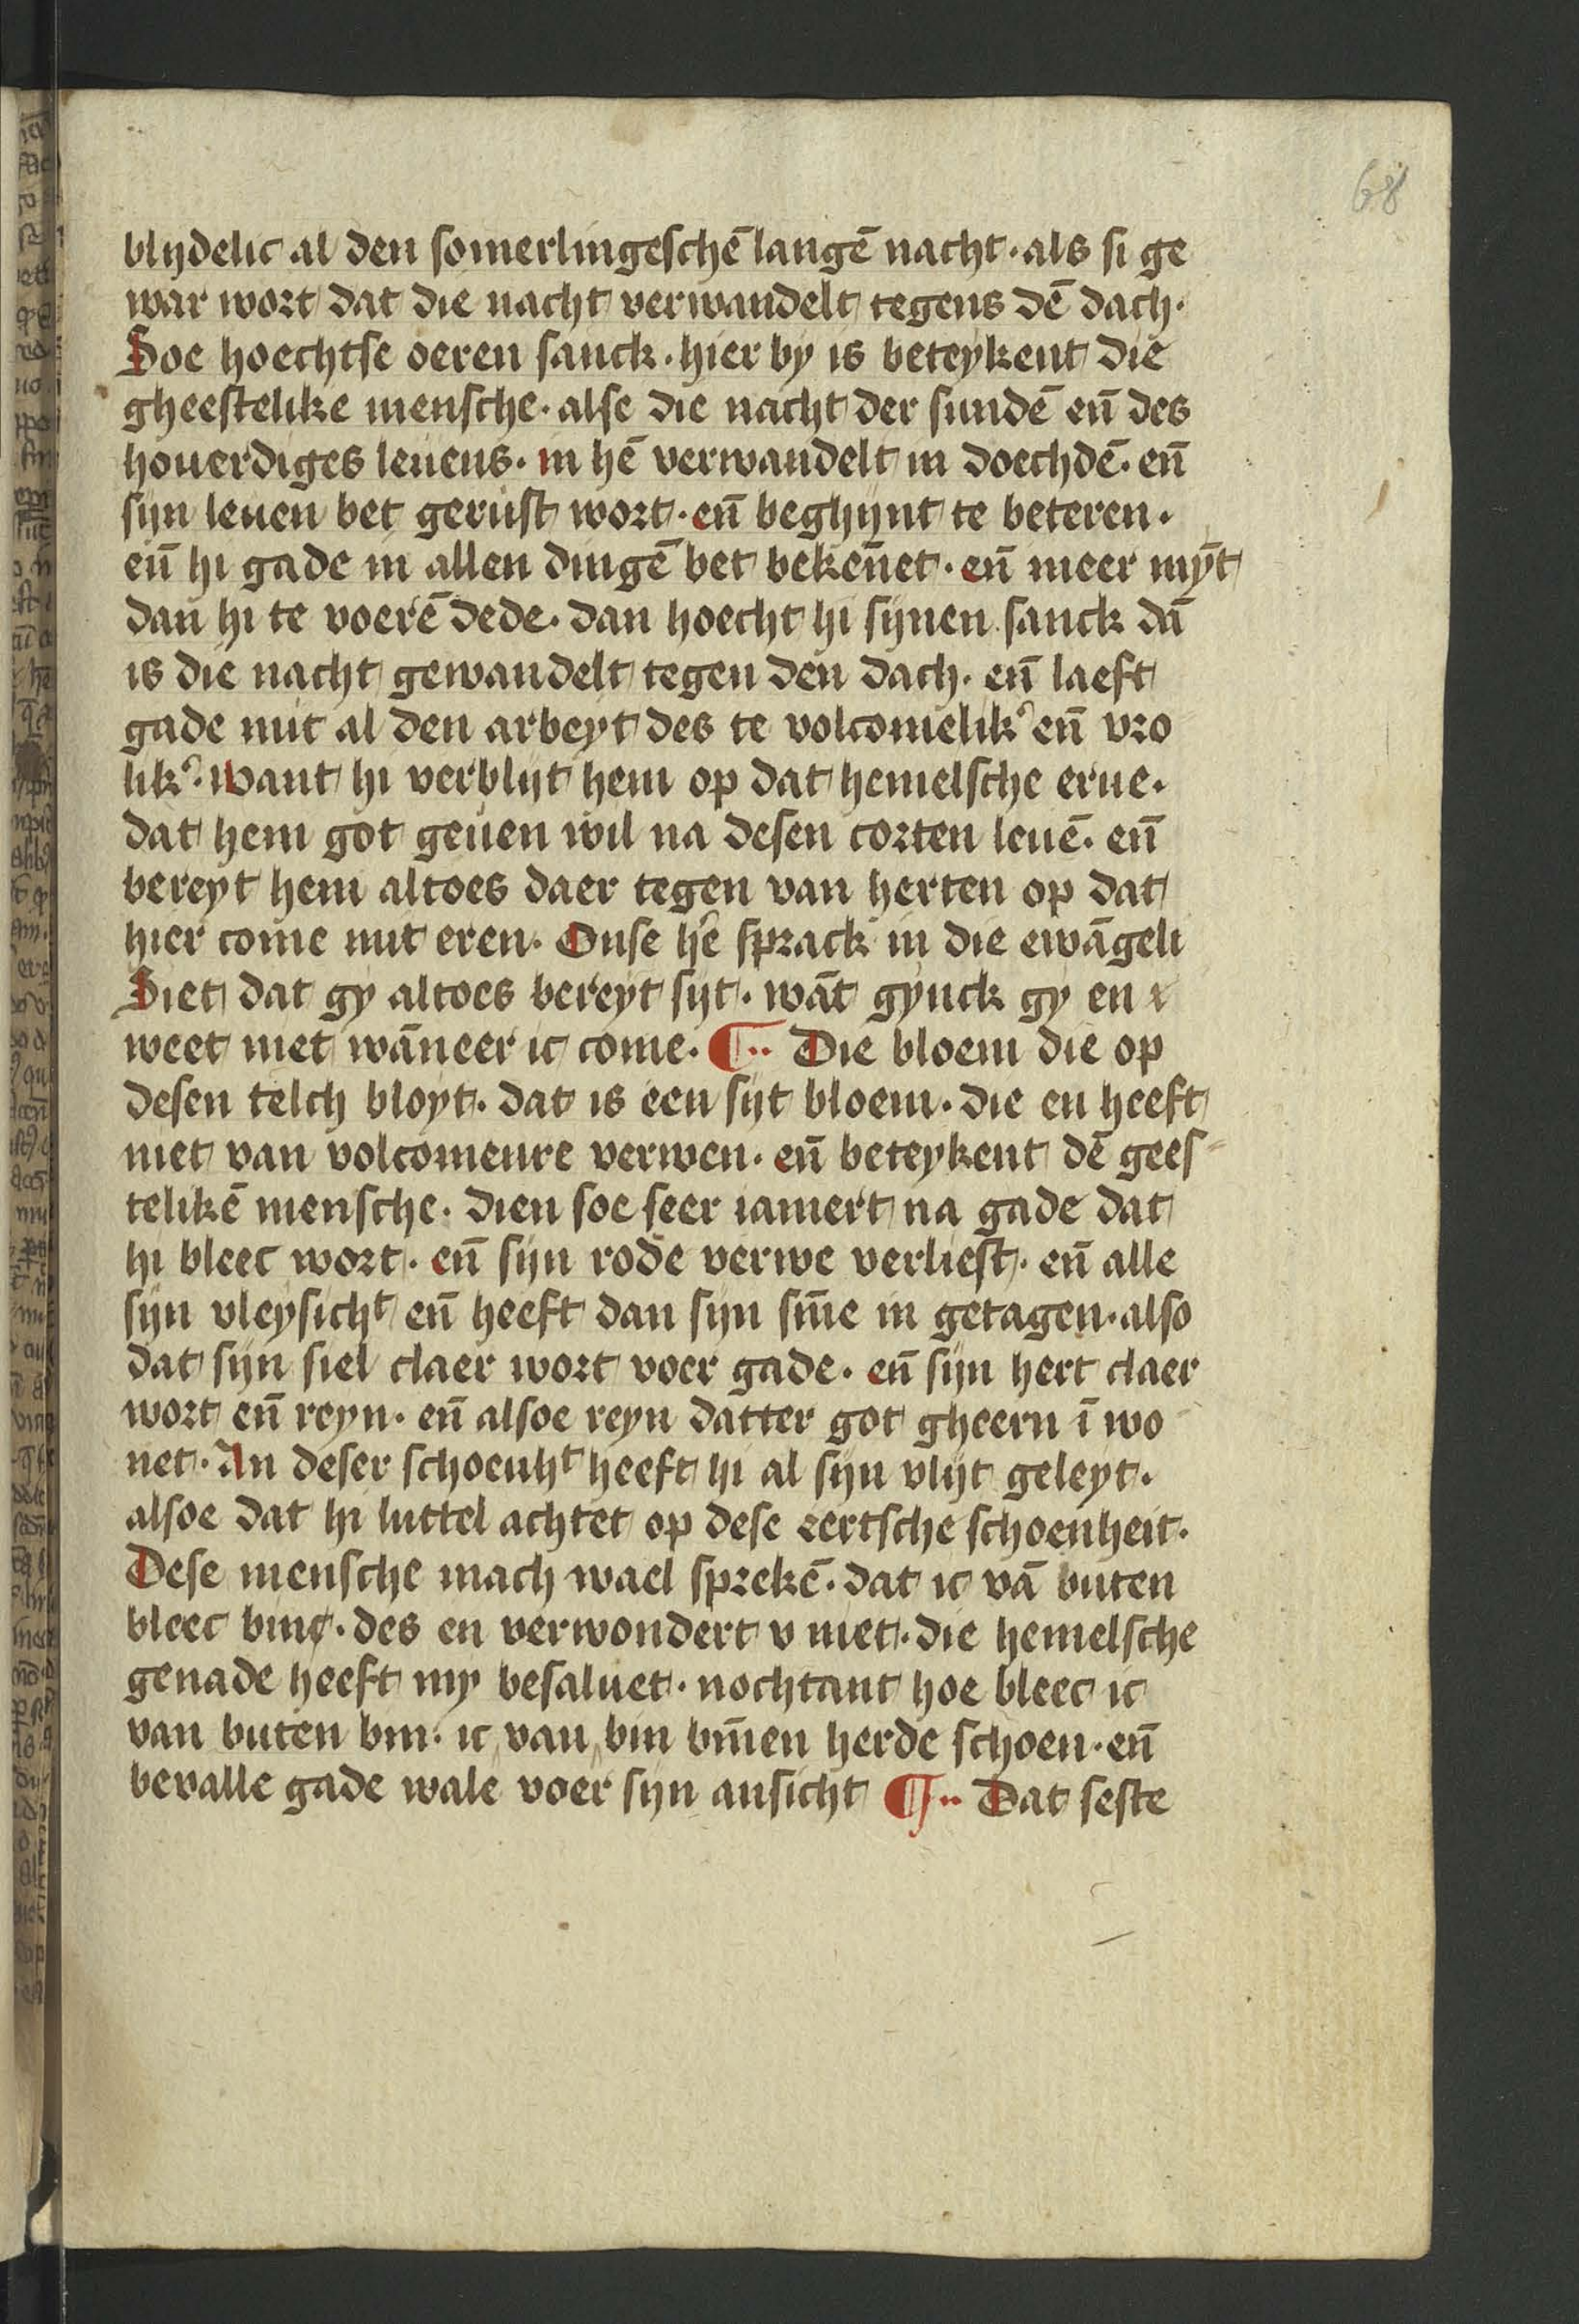 68
blijdelic al den somerlingeschē langē nacht · als si ge
war wort dat die nacht verwandelt tegens dē dach ·
Soe hoechtse oeren sanck · hier by is beteykent die
gheestelike mensche · alse die nacht der sundē eñ des
houerdiges leuens · in hē verwandelt in doechdē · eñ
sijn leuen bet gerust wort · eñ beghijnt te beteren ·
eñ hi gade in allen dingē bet bekēnet · eñ meer mȳt
dan hi te voerē dede · dan hoecht hi sijnen sanck dā
is die nacht gewandelt tegen den dach · eñ laeft
gade mit al den arbeyt des te volcomelik᾽ eñ vro
lik᾽ · want hi verblijt hem op dat hemelsche erue ·
dat hem got geuen wil na desen corten leuē · eñ
bereyt hem altoes daer tegen van herten op dat
hier come mit eren · Onse h᾽e sprack in die ewāgeli
Siet dat gy altoes bereyt sijt · wāt gynck gy en
weet niet wāneer ic come · ¶ ·· Die bloem die op
desen telch bloyt · dat is een sijt bloem · die en heeft
niet van volcomenre verwen · eñ beteykent dē gees-
telikē mensche · dien soe seer iamert na gade dat
hi bleec wort · eñ sijn rode verwe verliest · eñ alle
sijn vleysichᵗ eñ heeft dan sijn sīne in getagen · also
dat sijn siel claer wort voer gade · eñ sijn hert claer
wort eñ reyn · eñ alsoe reyn datter got gheern ī wo
net · An deser schoenhᵗ heeft hi al sijn vlijt geleyt ·
alsoe dat hi luttel achtet op dese eertsche schoenheit ·
Dese mensche mach wael sprekē · dat ic vā buten
bleec binc · des en verwondert v niet · die hemelsche
genade heeft my besaluet · nochtant hoe bleec ic
van buten bin · ic van bin bīnen herde schoen · eñ
bevalle gade wale voer sijn ansicht ¶ ·· Dat seste